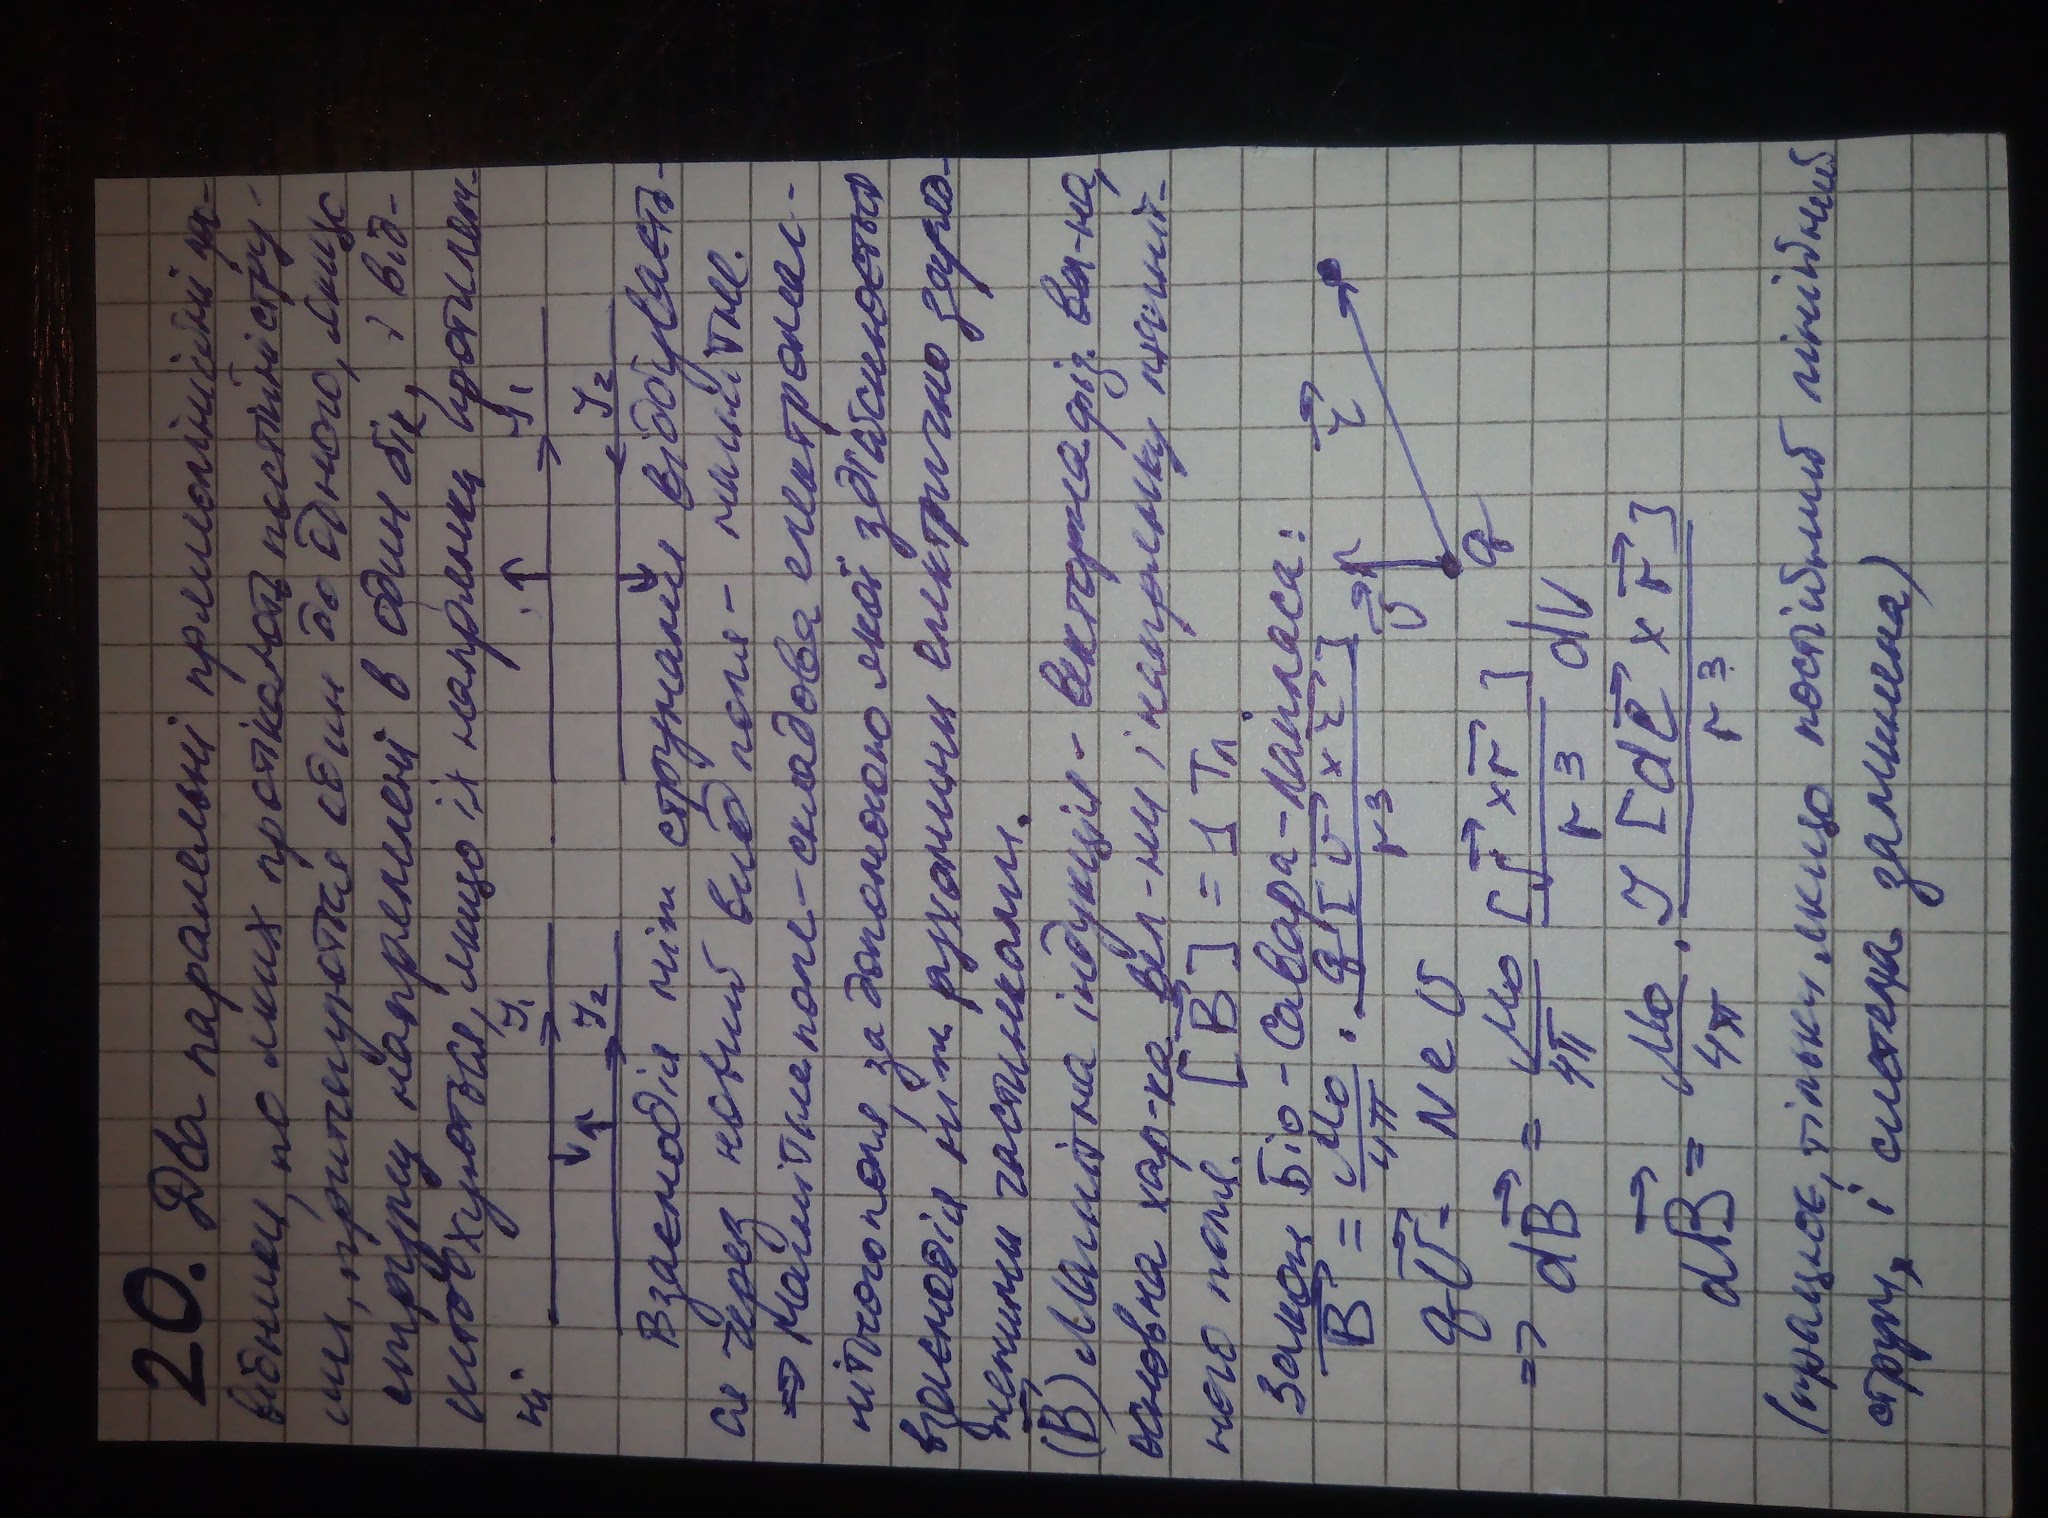 20. Два паралельні прямолінійні про-
відники, по яких протікають постійні стру-
ми, притягуються один до одного, якщо
струми направлені в один бік, і від-
штовхуються, якщо їх напрямки протилеж-
ні
I₁ I₁
I₂ I₂
Взаємодія між струмами відбуваєть-
ся через новий вид поля - магнітне.
⇒ Магнітне поле - складова електромаг-
нітного поля за допомогою якої здійснюється
взаємодія між рухомими електрично заря-
дженими частинками.
(B) Магнітна індукція - векторна фіз. вел-на,
основна хар-ка вел-ни і напрямку магніт-
ного поля. [B] = 1 Тл
Закон Біо - Савара - Лапласа:
B⃗ = μ₀/4π · q[v⃗ × r⃗]/r³
v⃗ r⃗ q
qv⃗ = Nev
⇒ dB⃗ = μ₀/4π [j⃗ × r⃗]/r³ dV
dB⃗ = μ₀/4π · I[dl⃗ × r⃗]/r³
(працює, тільки якщо постійний лінійний
струм, і система замкнена)